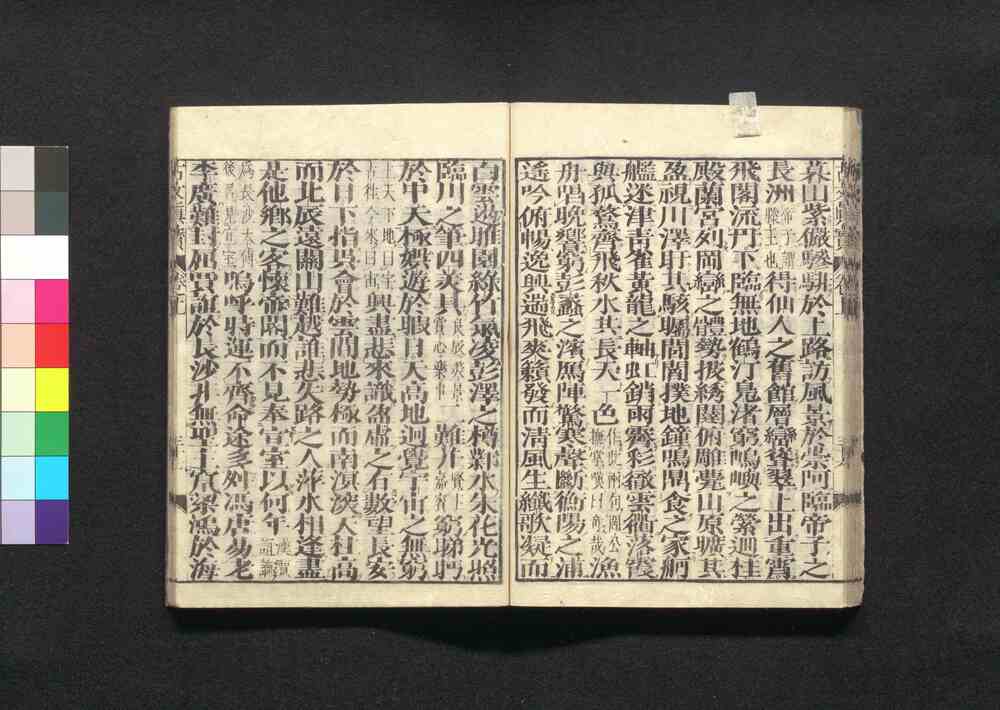 暮山紫儼驂騑於上路訪風景於崇阿臨帝子之
長洲帝子謂滕王也得仙人之舊館層巒聳翠上出重霄
飛閣流丹下臨無地鶴汀鳧渚窮島嶼之縈迴桂
殿蘭宮列岡巒之體勢披綉闥俯雕甍山原曠其
盈視川澤盱其駭矚閭閻撲地鐘鳴鼎食之家舸
艦迷津青雀黃龍之軸虹銷雨霽彩徹雲衢落霞
與孤鶩齊飛秋水共長天一色作此兩句閻公撫掌曰奇哉漁
舟唱晚響窮彭蠡之濱鴈陣驚寒聲斷衡陽之浦
遙吟俯暢逸興遄飛爽籟發而清風生纖歌凝而
白雲遏睢園綠竹氣凌彭澤之樽鄴水朱花光照
臨川之筆四美具良辰美景賞心樂事二難并賢主嘉賓窮睇眄
於中天極娛遊於暇日天高地迥覺宇宙之無窮
上天下地曰宇古往今來曰宙興盡悲來識盈虛之有數望長安
於日下指吳會於雲間地勢極而南溟深天柱高
而北辰遠關山難越誰悲失路之人萍水相逢盡
是他鄉之客懷帝閽而不見奉宣室以何年漢賈誼謫
為長沙太傅後見宣室嗚呼時運不齊命途多舛馮唐易老
李廣難封屈賈誼於長沙非無聖主竄梁鴻於海
古文真寶